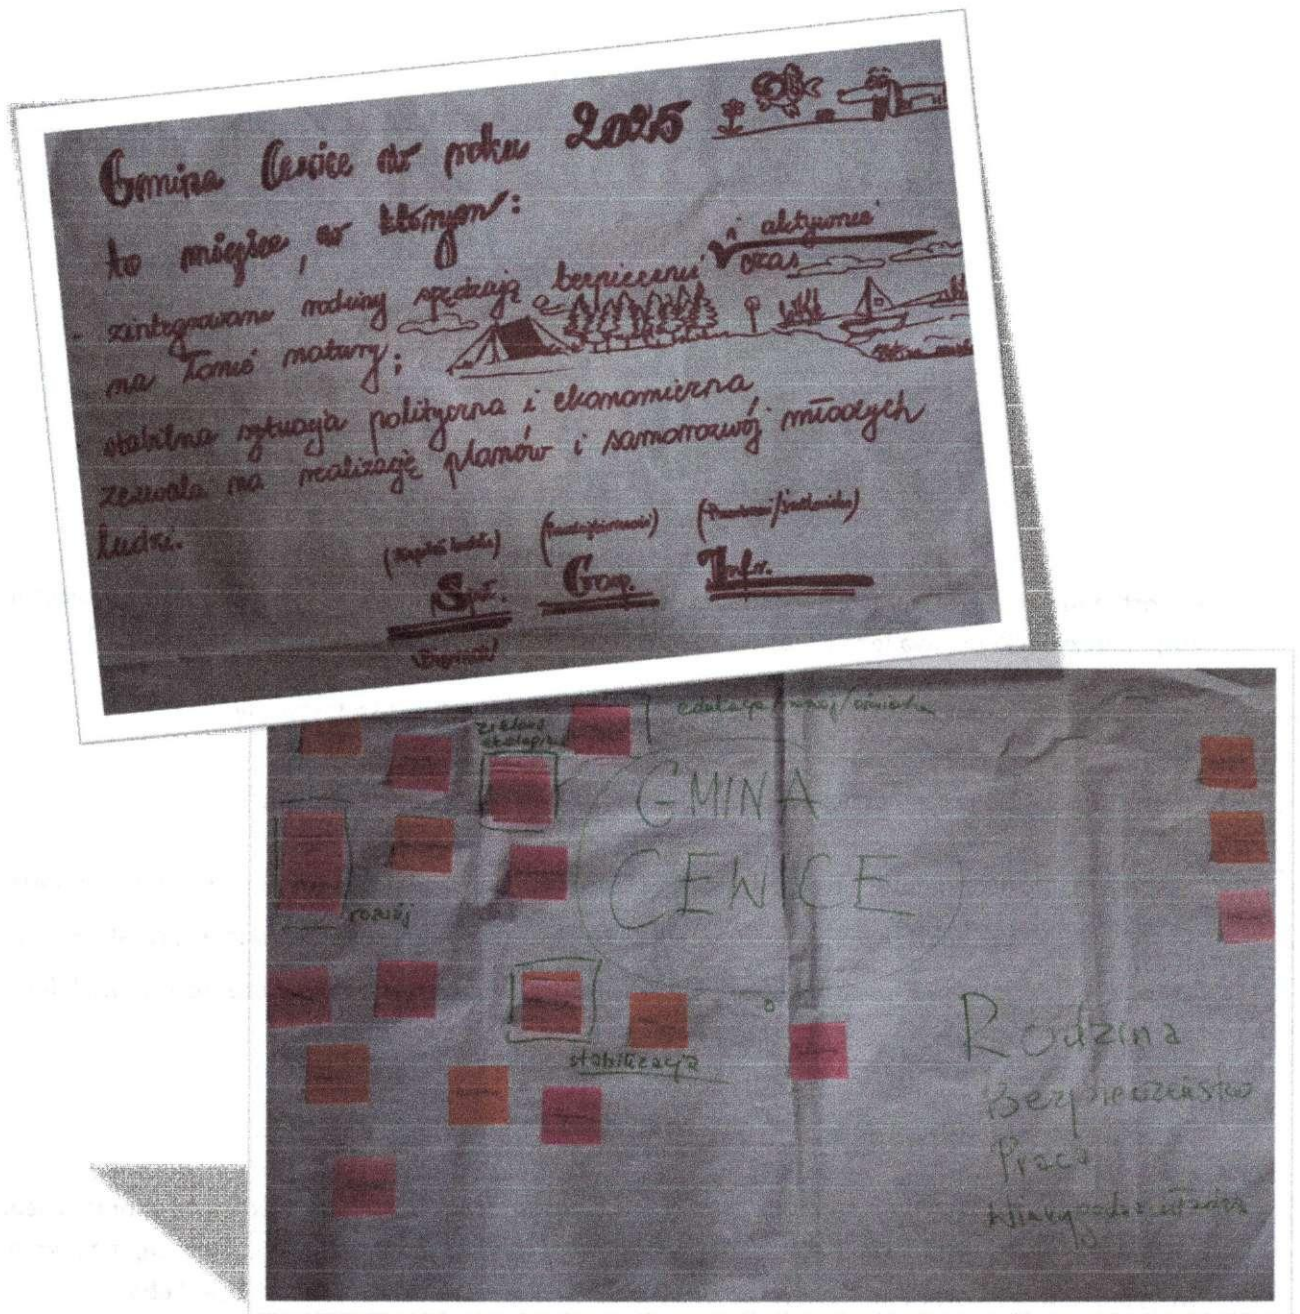 Gmina Cewice w roku 2025
to miejsce, w którym:
zintegrowane rodziny spędzają bezpiecznie i aktywnie czas
na łonie natury;
stabilna sytuacja polityczna i ekonomiczna
zezwala na realizację planów i samorozwój młodych
ludzi.
(Kapitał ludzki) (Przedsiębiorczość) (Przestrzeń/środowisko)
Społ. Gosp. Infr.
GMINA
CEWICE
rozwój
stabilizacja
Rodzina
Bezpieczeństwo
Praca